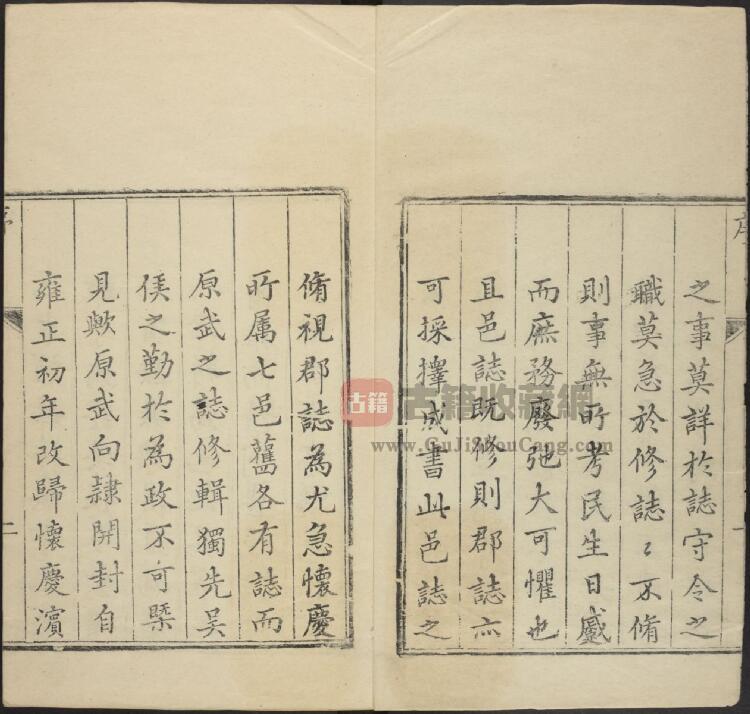 之事莫詳於誌守令之
職莫急於修誌〻不脩
則事無所考民生日蹙
而庶務廢弛大可懼也
且邑誌既修則郡誌亦
可採擇成書此邑誌之
脩視郡誌為尤急懷慶
所属七邑舊各有誌而
原武之誌修輯獨先吴
侯之勤於為政不可槩
見歟原武向隷開封自
雍正初年改歸懷慶濵
二
古籍
古籍收藏網
www.GuJiShouCang.com